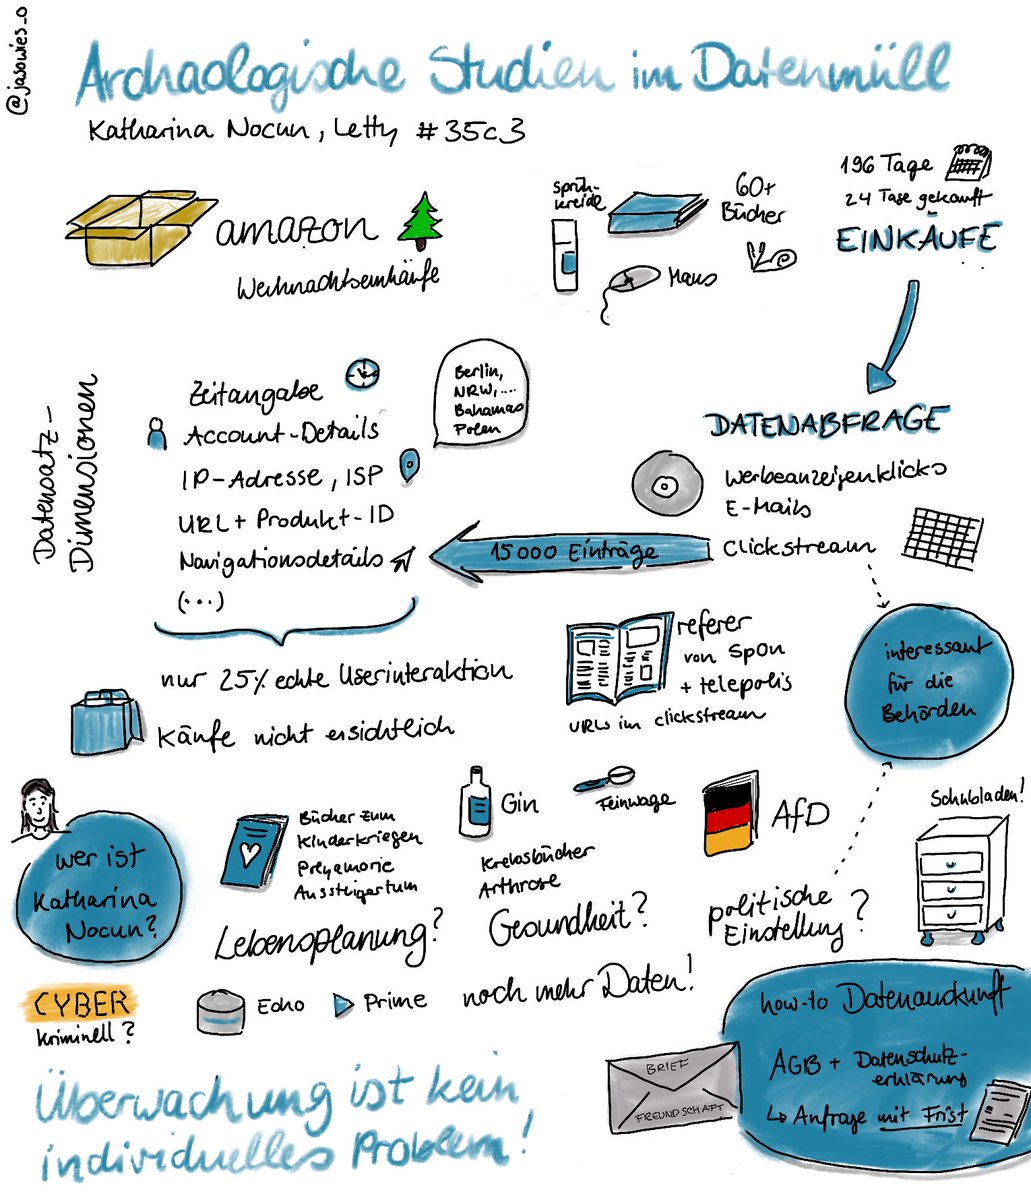 @jasowies_o
Archäologische Studien im Datenmüll
Katharina Nocun, Letty #35c3
amazon
Weihnachtseinkäufe
Sprüh-
kreide
60+
Bücher
Maus
196 Tage
24 Tage gekauft
EINKÄUFE
DATENABFRAGE
Werbeanzeigenklicks
E-Mails
Clickstream
15000 Einträge
Datensatz-
Dimensionen
Zeitangabe
Account-Details
IP-Adresse, ISP
URL + Produkt-ID
Navigationsdetails
(...)
Berlin,
NRW,....
Bahamas
Polen
nur 25% echte Userinteraktion
Käufe nicht ersichtlich
referer
von SpOn
+ telepolis
URLs im clickstream
interessant
für die
Behörden
wer ist
Katharina
Nocun?
Bücher zum
Kinderkriegen
Aussteigertum
Lebensplanung?
Gin
Feinwage
Krebsbücher
Arthrose
Gesundheit?
AfD
politische
Einstellung?
Schubladen!
CYBER
kriminell?
Echo
Prime
noch mehr Daten!
how-to Datenauskunft
AGB + Datenschutz-
erklärung
↳ Anfrage mit Frist
BRIEF
FREUNDSCHAFT
Überwachung ist kein
individuelles Problem!